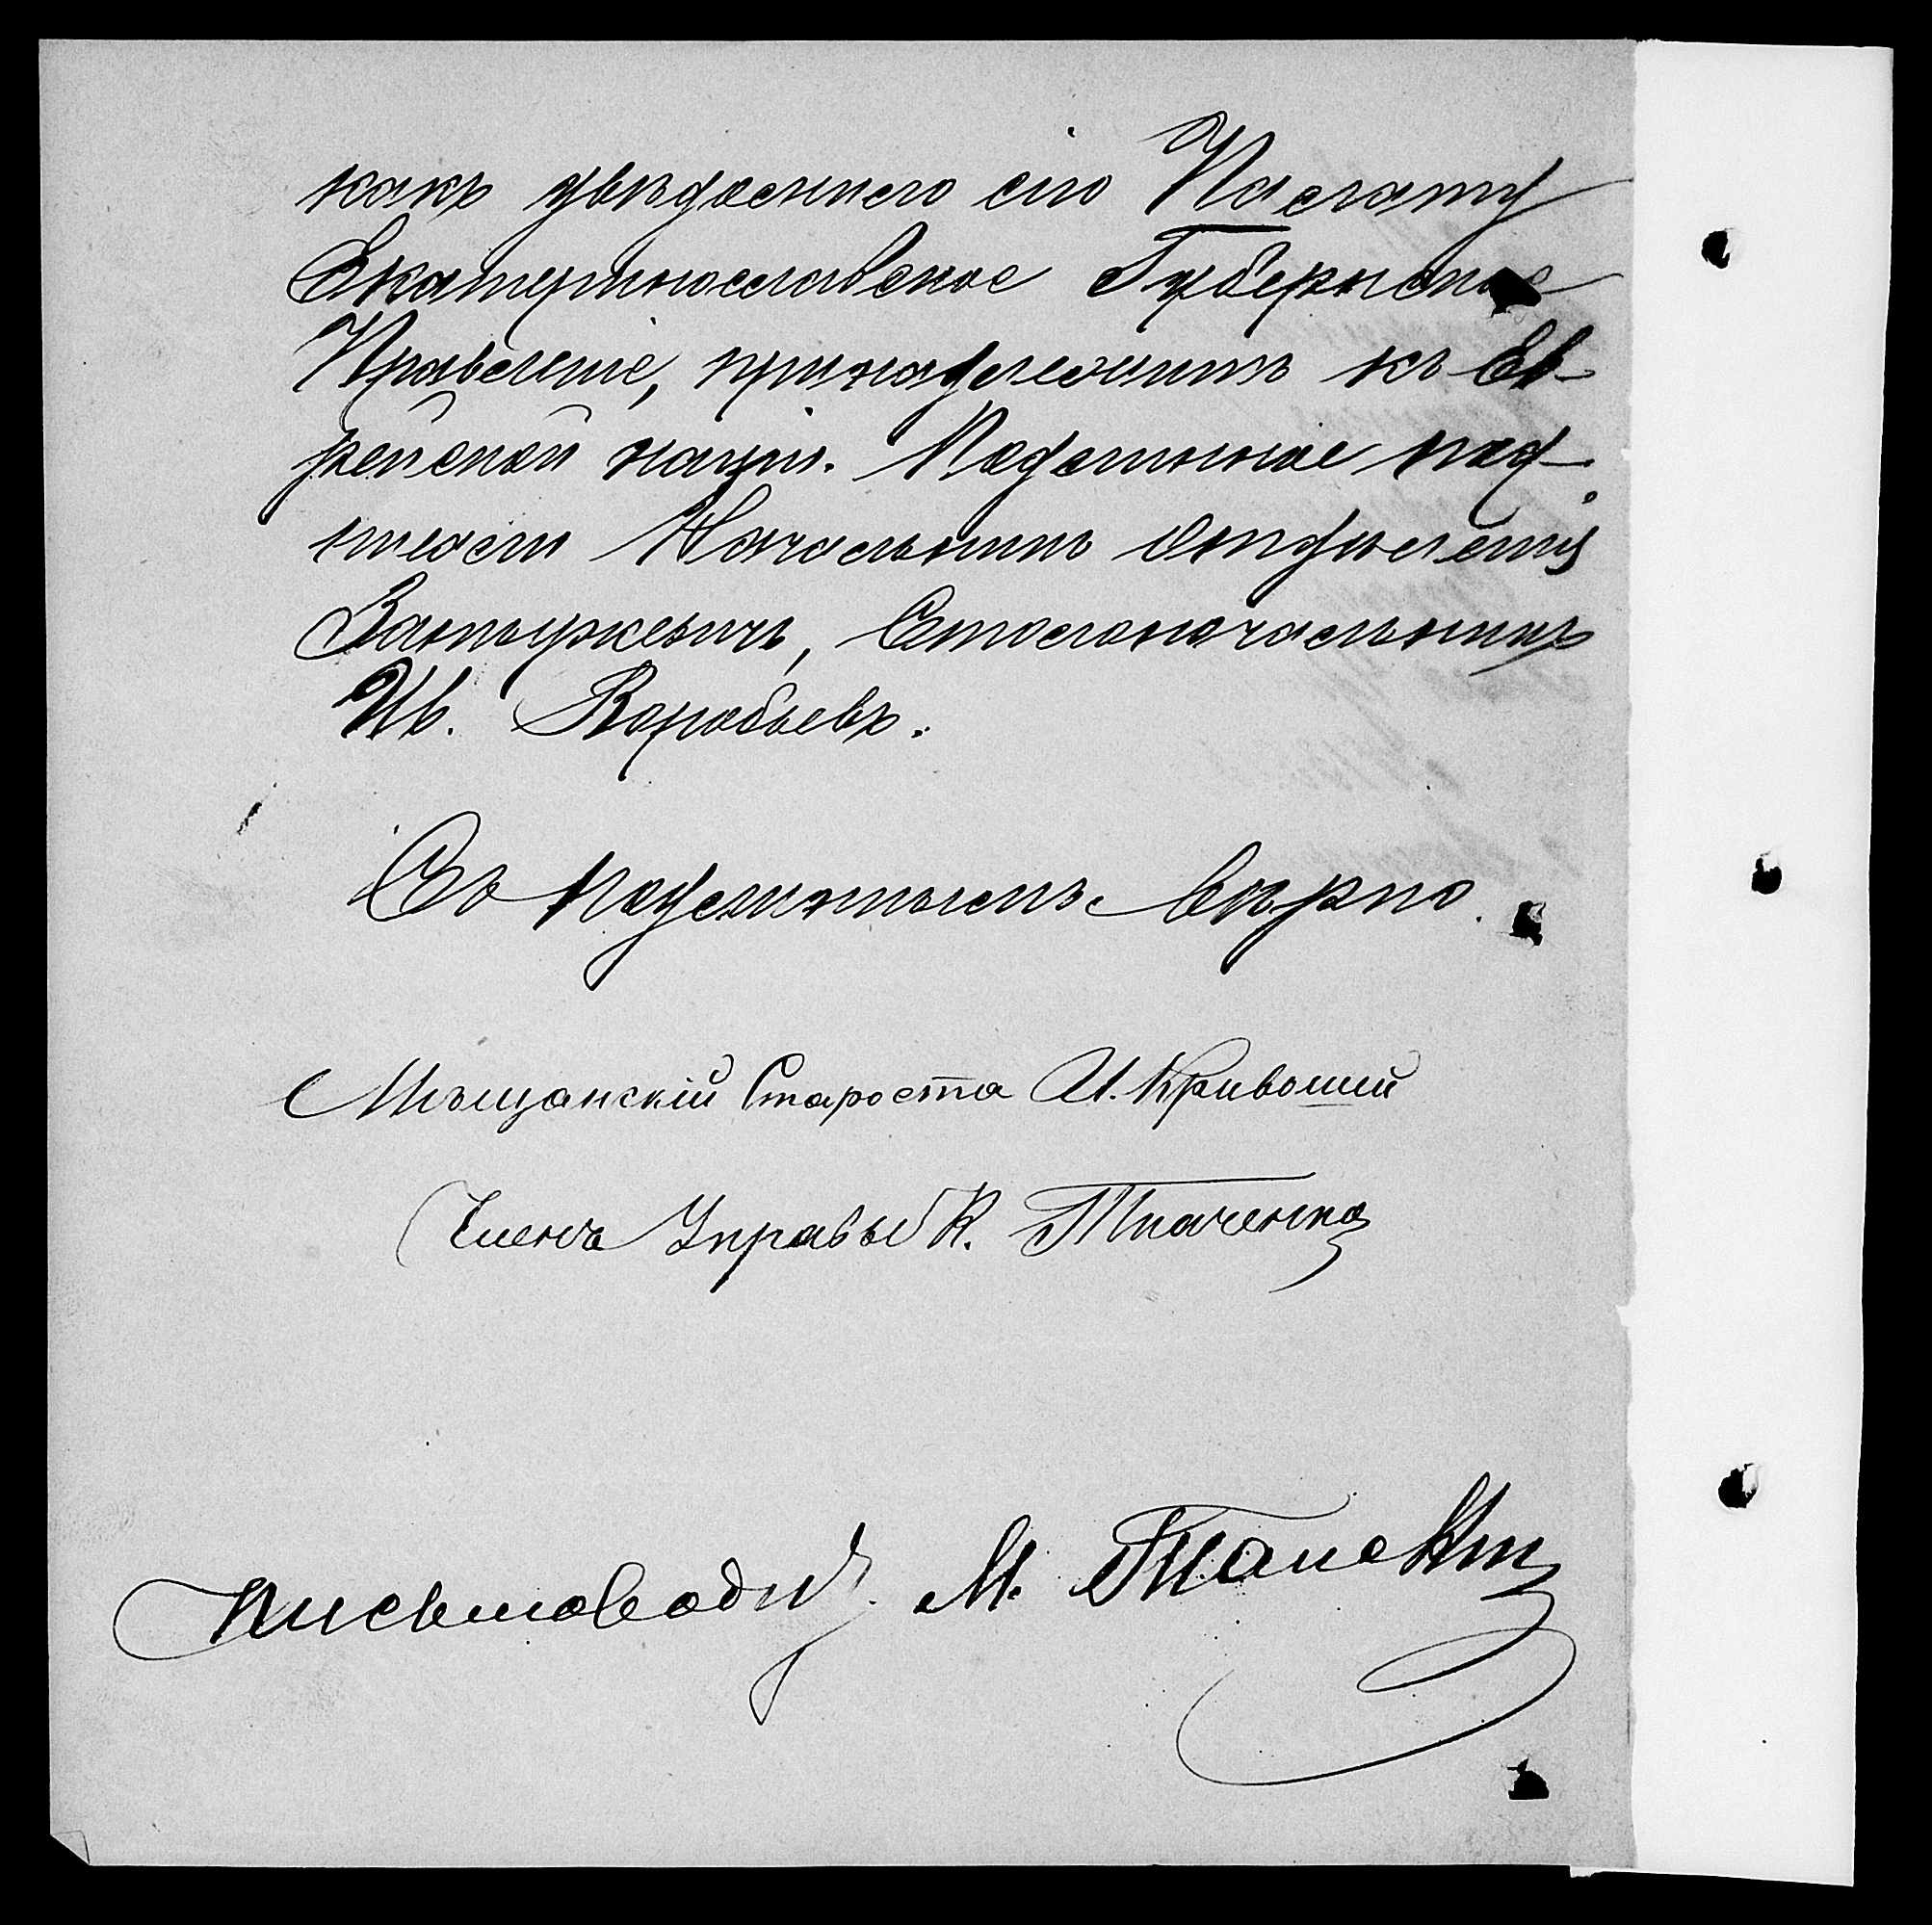 какъ увѣдомило сію Палату
Екатеринославское Губернское
Правленіе, принадлежитъ къ Ев-
рейской націи. Подлинное под-
писали Начальникъ Отдѣленія
Столоначальникъ
Ив. Воробьевъ.
Съ подлиннымъ вѣрно.
Мѣщанскій Староста И. Кривоший
Членъ Управы К. Ткаченко
Письмоводит. М.